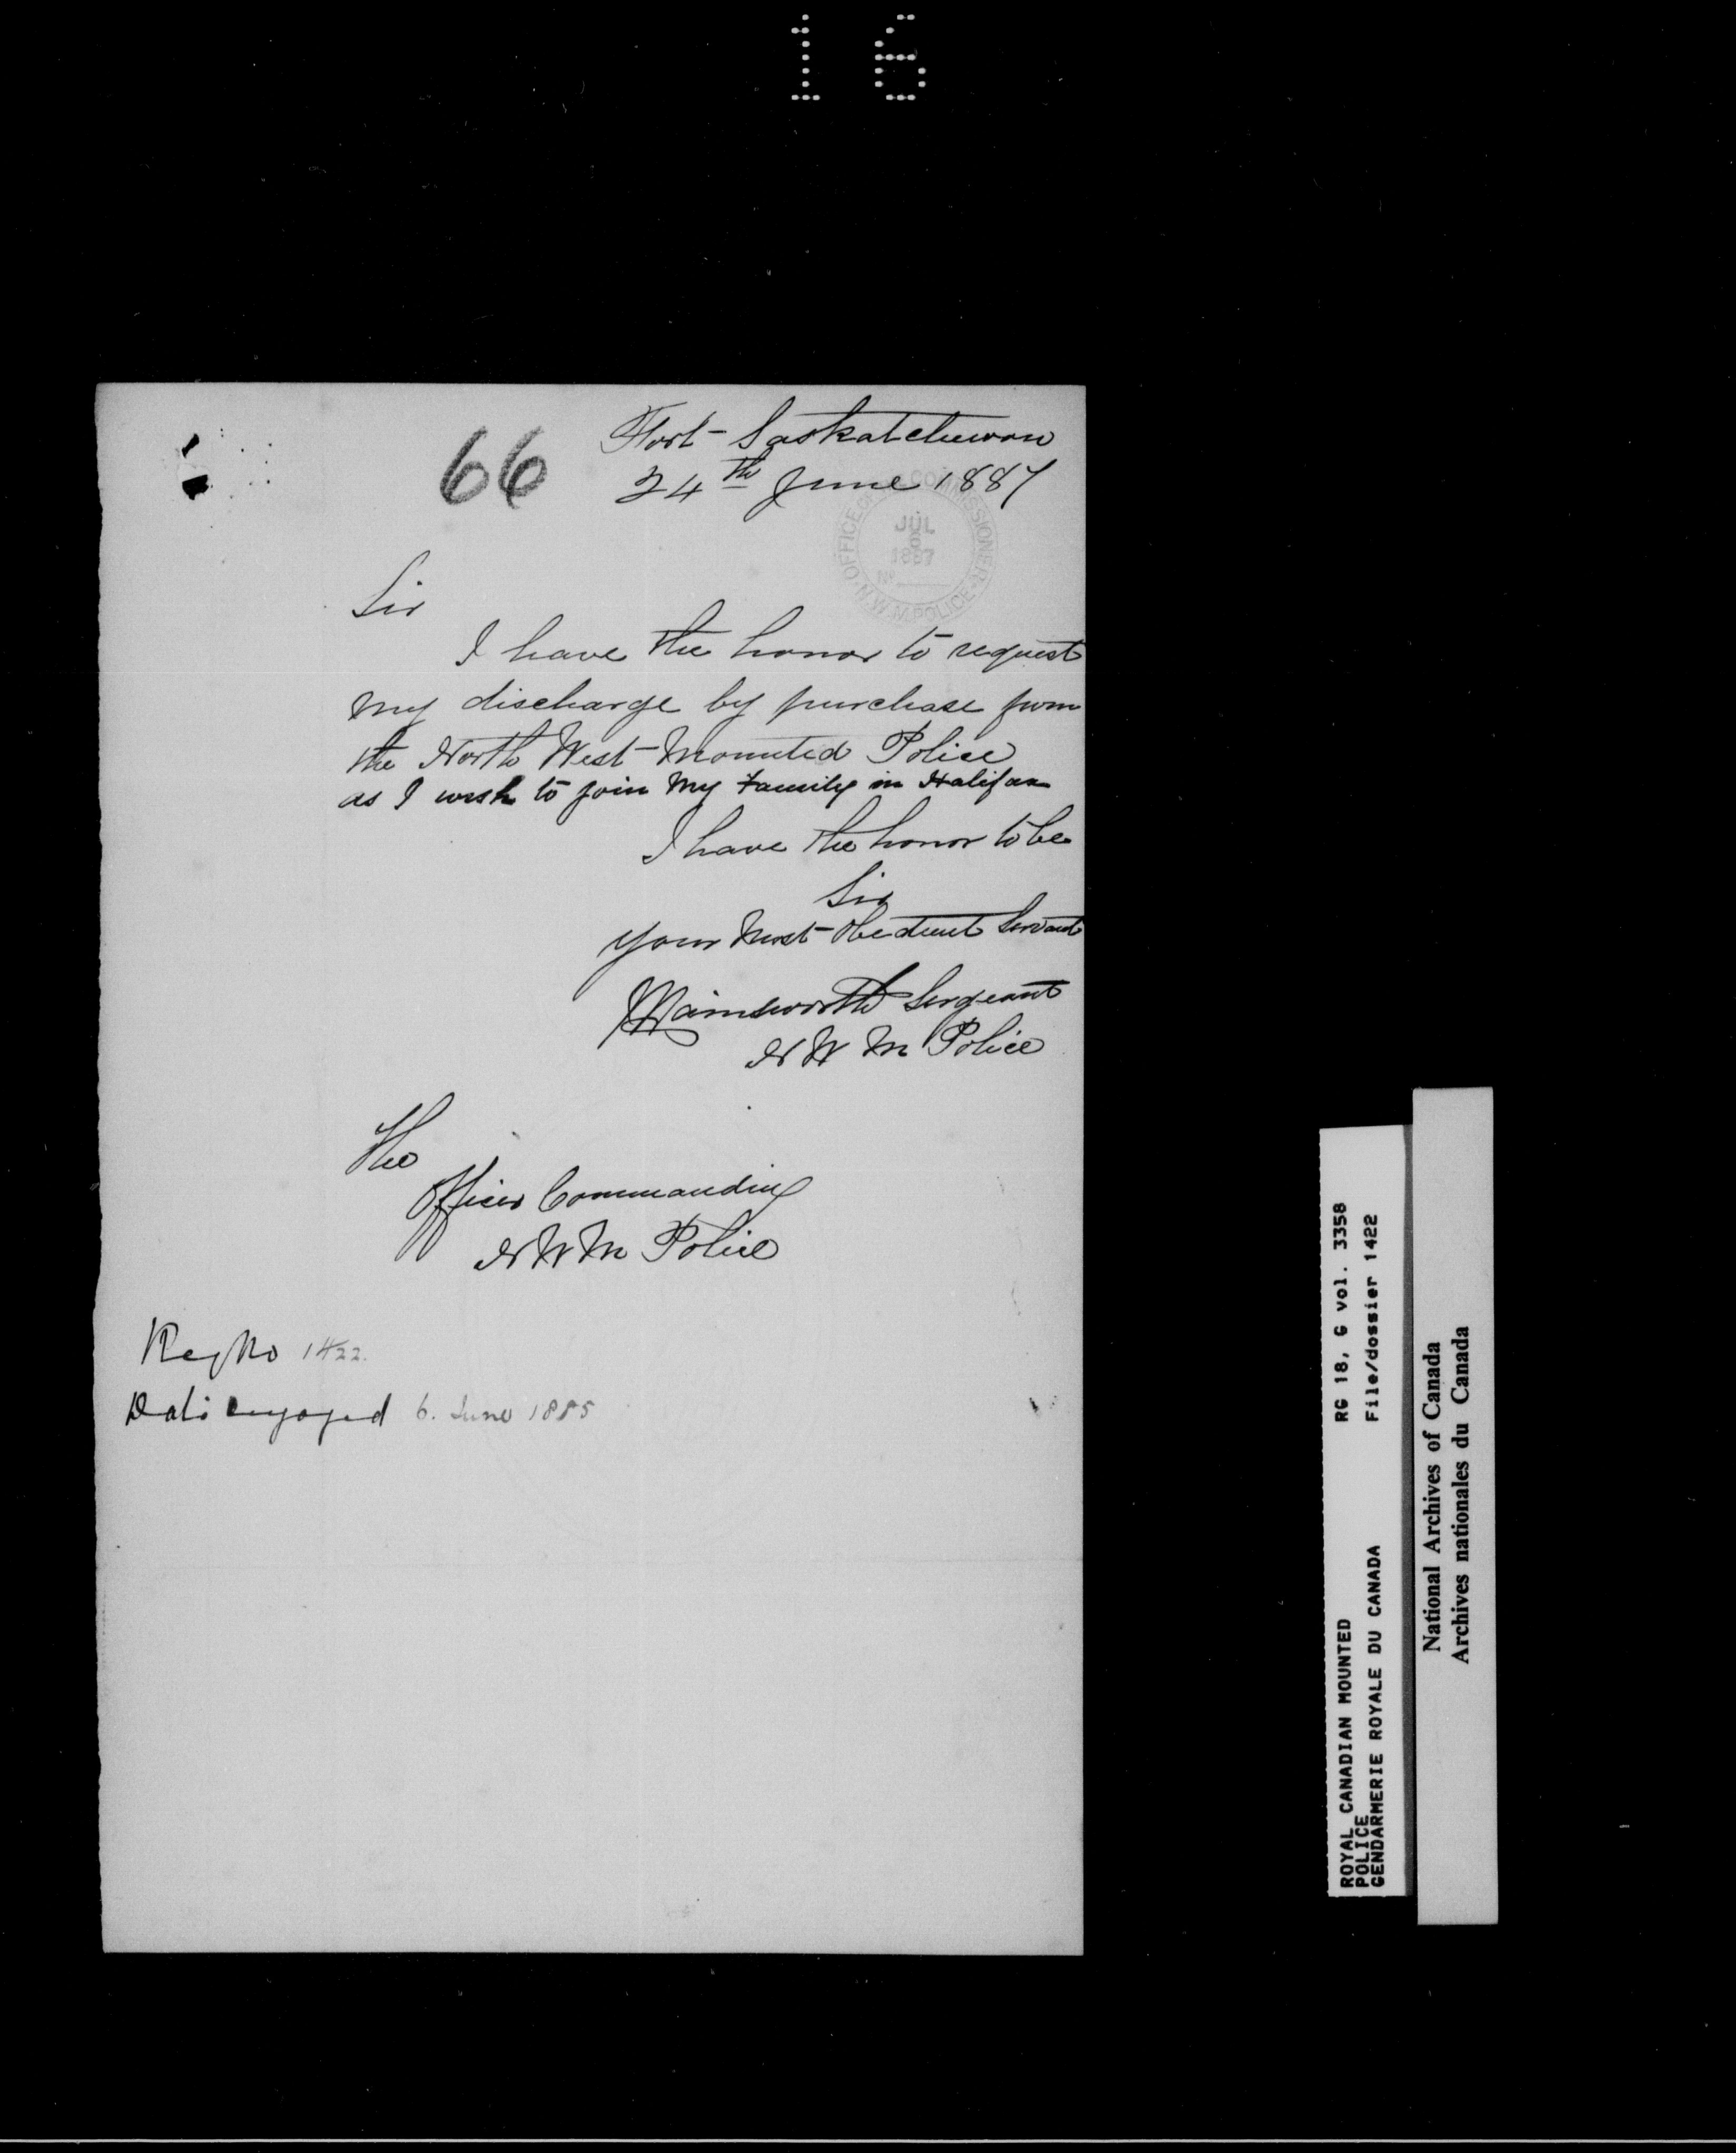 16
66
Fort Saskatchewan
24th June 1887
OFFICE OF COMMISSIONER
JUL
8
1887
No
N.W.M. POLICE
Sir
I have the honor to request
my discharge by purchase from
the North West Mounted Police
as I wish to join my family in Halifax
I have the honor to be
Sir
your most obedient servant
Wainsworth Sergeant
N W M Police
The
Officer Commanding
N W M Police
Reg No 1422.
Date engaged 6. June 1885
ROYAL CANADIAN MOUNTED
POLICE
GENDARMERIE ROYALE DU CANADA
RG 18, G vol. 3358
File/dossier 1422
National Archives of Canada
Archives nationales du Canada